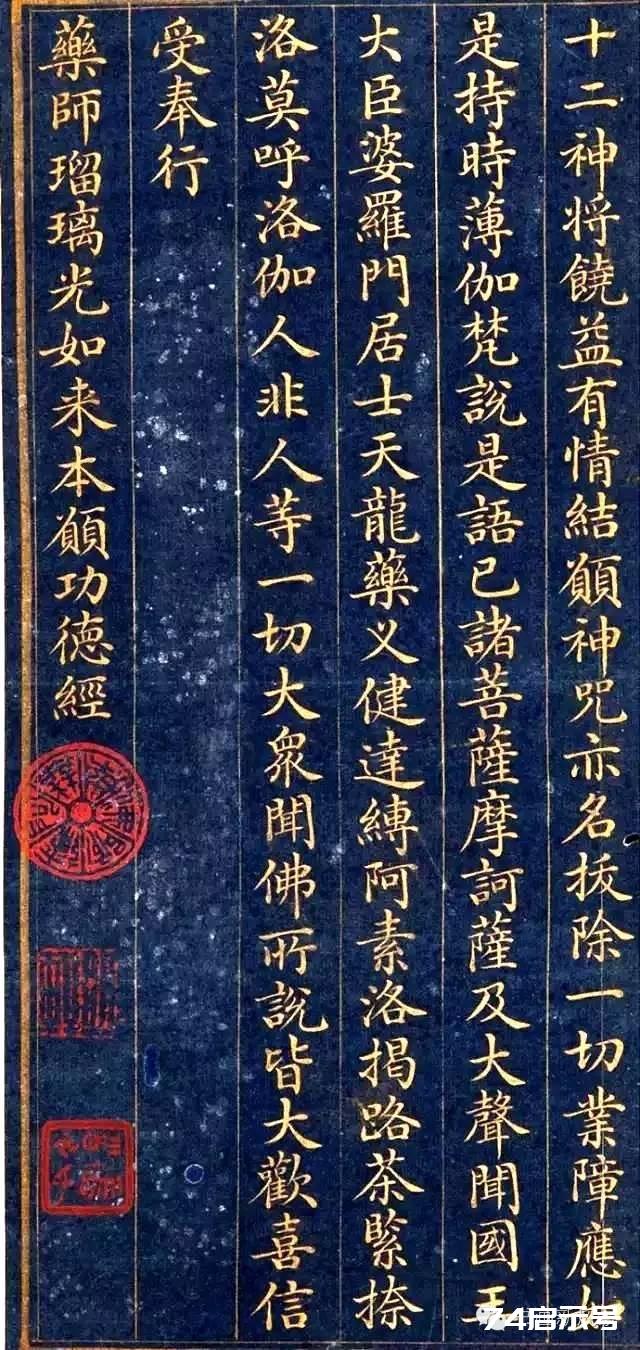 十二神将饒益有情結願神咒亦名拔除一切業障應如
是持時薄伽梵說是語已諸菩薩摩訶薩及大聲聞國王
大臣婆羅門居士天龍藥义健達縛阿素洛揭路荼緊捺
洛莫呼洛伽人非人等一切大衆聞佛所說皆大歡喜信
受奉行
藥師瑠璃光如来本願功德經
74启示号